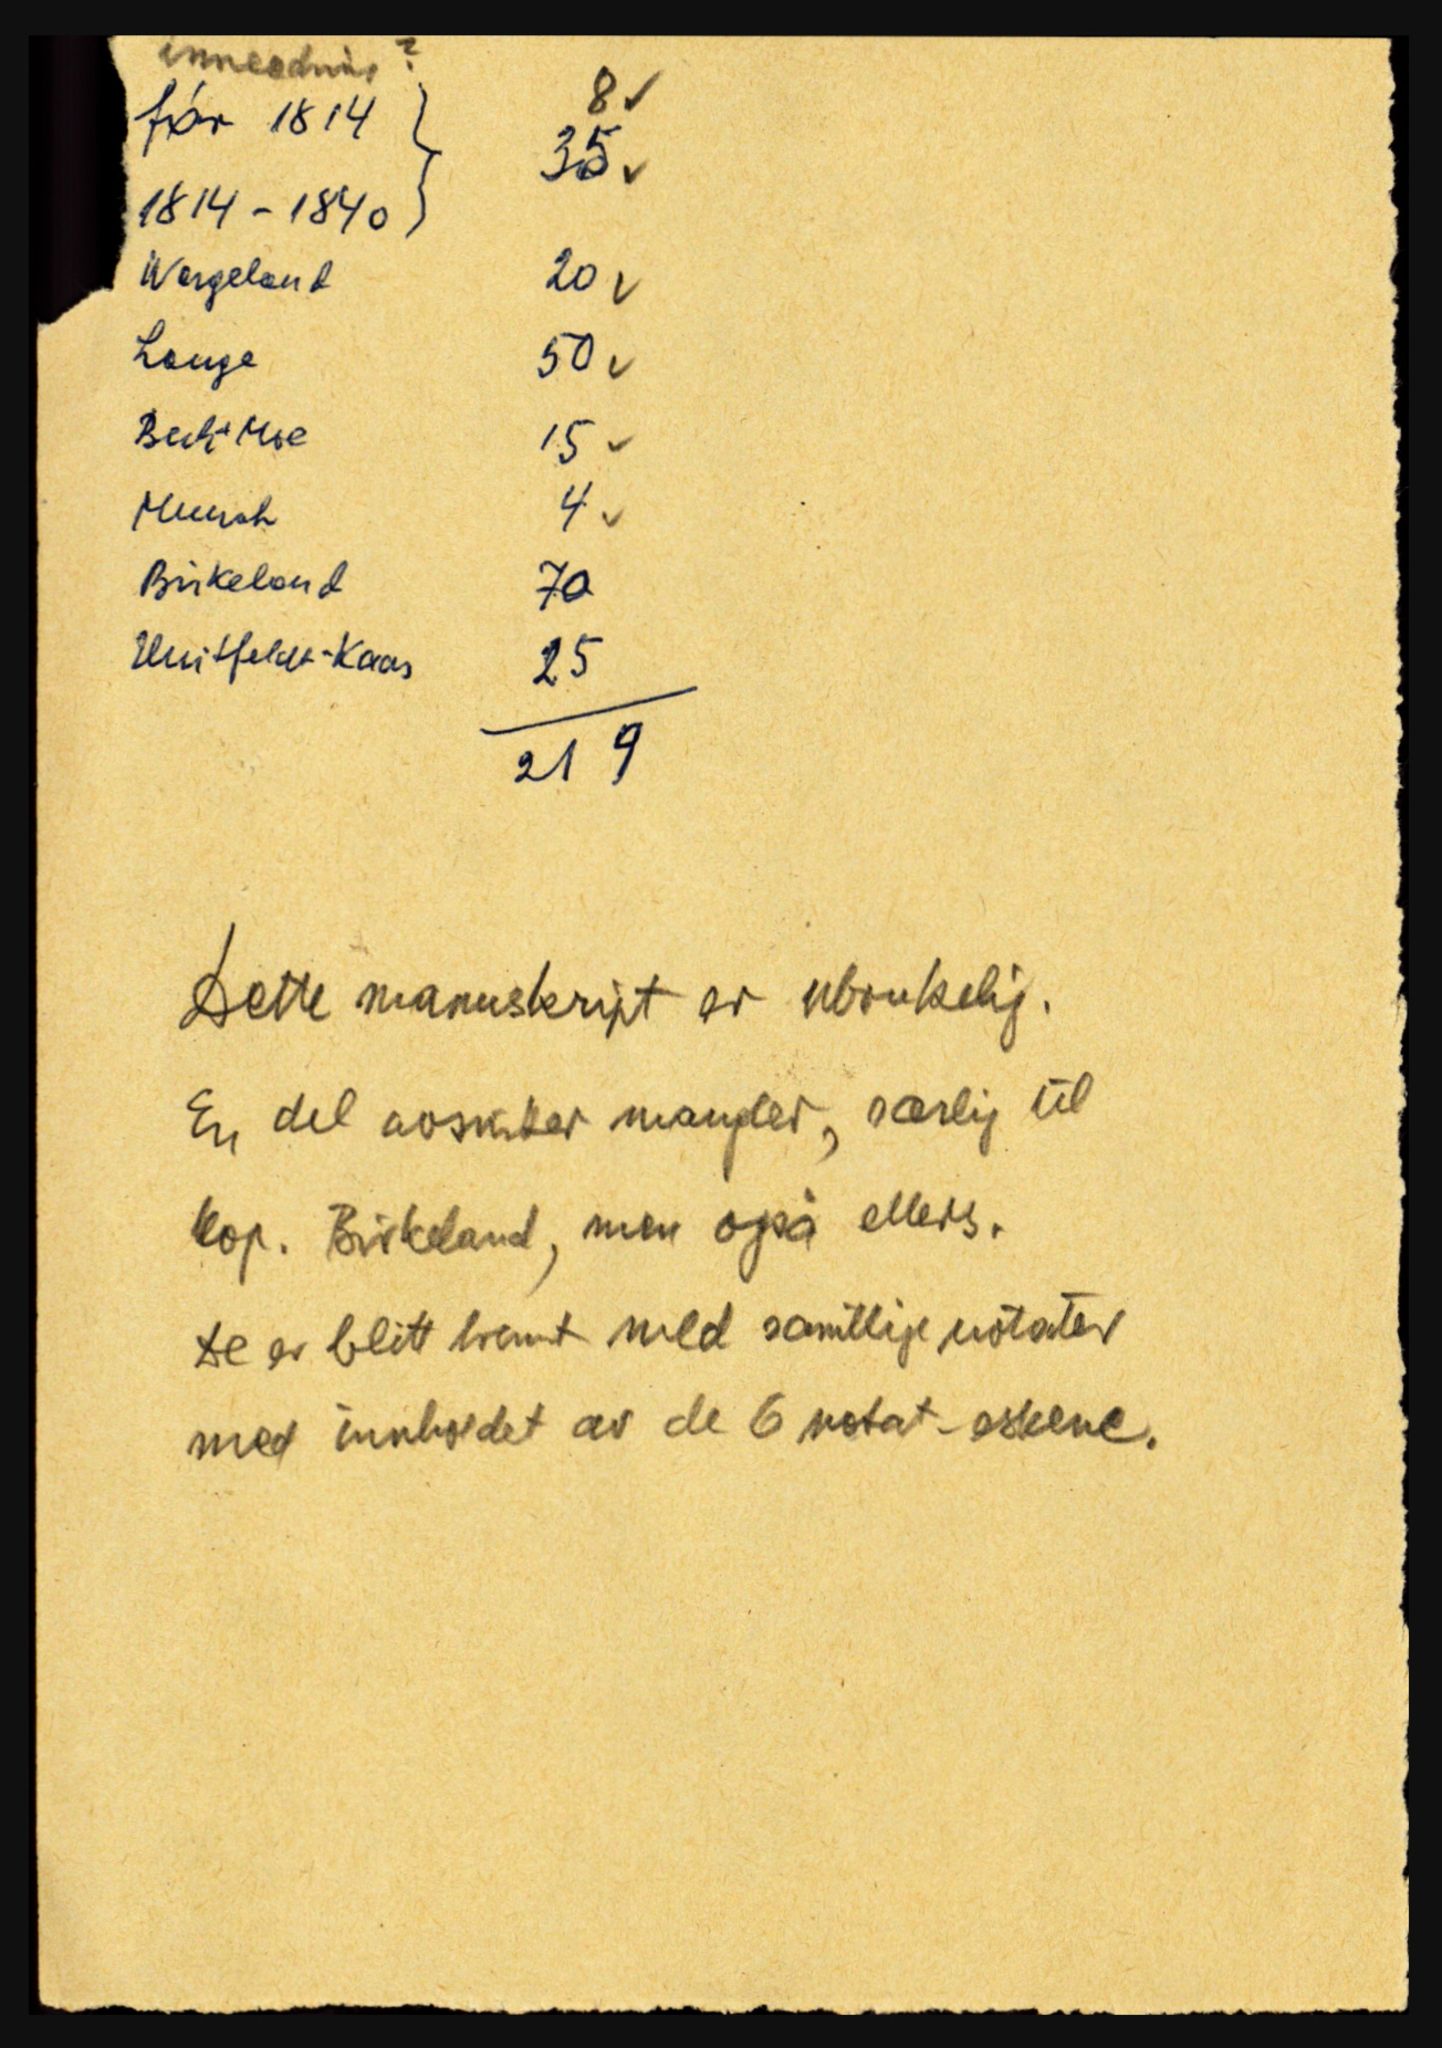 innledning? 8 ✓
før 1814 } 35 ✓
1814 - 1840
Wergeland 20 ✓
Lange 50 ✓
Bech + Moe 15 ✓
Munch 4 ✓
Birkeland 70
Huitfeldt-Kaas 25
219
Dette manuskript er ubrukelig.
En del avsnitter mangler, særlig til
kap. Birkeland, men også ellers.
De er blitt brent med samtlige notater
med innholdet av de 6 notat-eskene.